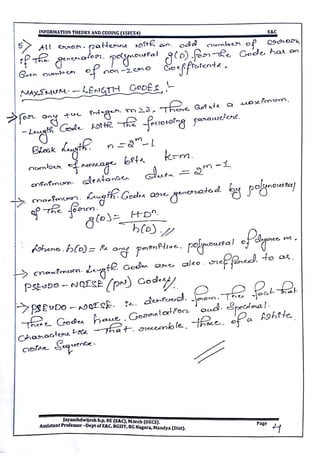 INFORMATION THEORY AND CODING (15EC54) E&C
5) All error patterns with an odd number of errors
if The generator polynomial g(D) for the Code has an
Even number of non-zero coefficients.
MAXIMUM - LENGTH CODES:-
→ for any +ve integer m≥3, There Exist a maximum
- Length Code with The following parameters.
Block length. n = 2^m - 1
number of message bits k=m.
minimum distance dmin = 2^m-1
→ maximum length Codes are generated by polynomial
of The form.
g(D) = 1+D^n / h(D) //
where h(D) = is any primitive polynomial of degree m.
→ maximum length Codes are also referred to as
PSEUDO - NOISE (PN) Codes //
→ PSEUDO - NOISE is derived from The fact that
These Codes have Correlation and Spectral
characteristics That resemble those of a White
noise Sequence.
Jayanthdwijesh h.p, BE (E&C), M.tech (DECS).
Assistant Professor –Dept of E&C, BGSIT, BG Nagara, Mandya (Dist). Page 4